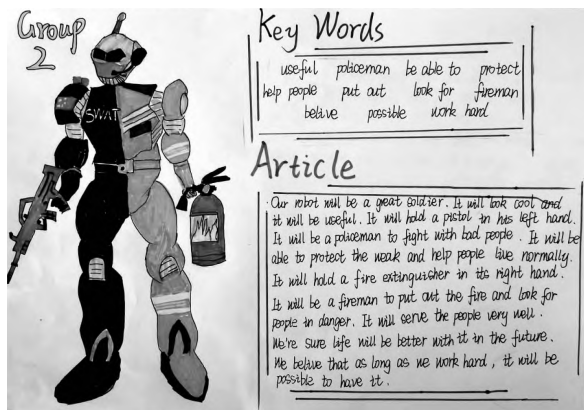 Group
2
SWAT
Key Words
useful policeman be able to protect
help people put out look for fireman
belive possible work hard
Article
Our robot will be a great soldier. It will look cool and
it will be useful. It will hold a pistol in his left hand.
It will be a policeman to fight with bad people. It will be
able to protect the weak and help people live normally.
It will hold a fire extinguisher in its right hand.
It will be a fireman to put out the fire and look for
people in danger. It will serve the people very well.
We're sure life will be better with it in the future.
We belive that as long as we work hard, it will be
possible to have it.